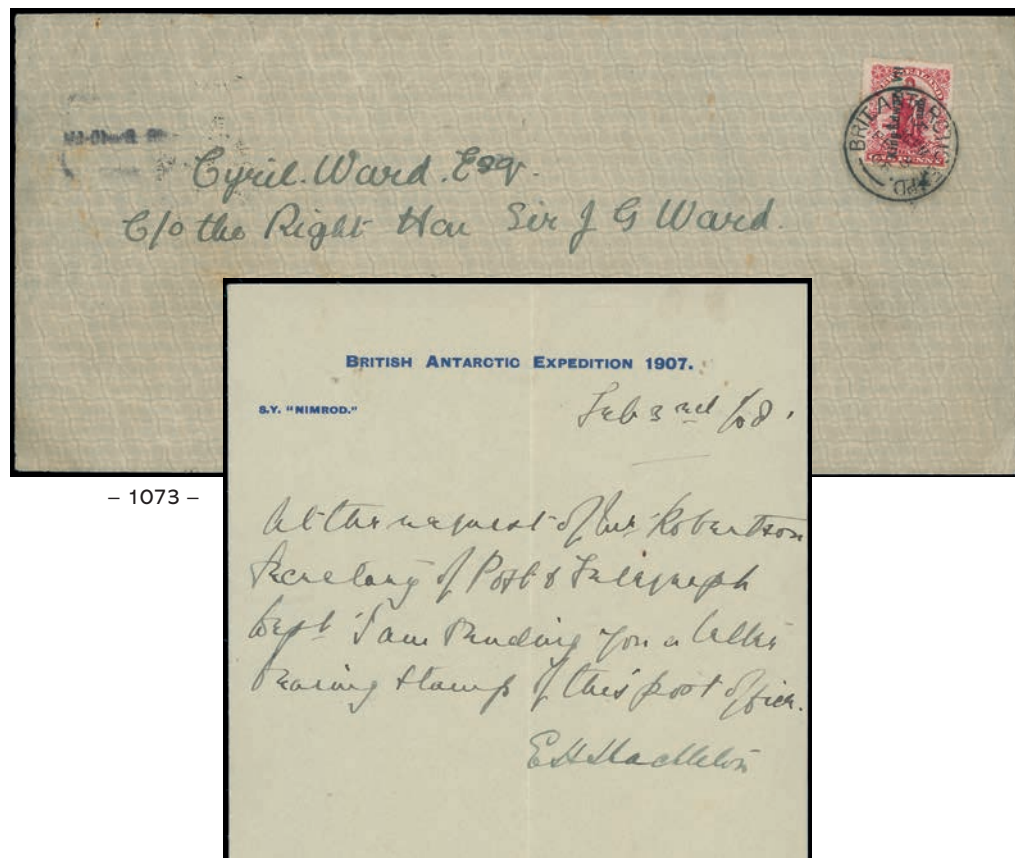 Cyril. Ward. Esqr.
C/o the Right Hon Sir J G Ward.
BRIT. ANTARCTIC EXPD.
– 1073 –
BRITISH ANTARCTIC EXPEDITION 1907.
S.Y. "NIMROD."
Feb 3rd /08.
At the request of Mr Robertson
Secretary of Post & Telegraph
Dept I am sending you a letter
bearing stamp of this post office.
E H Shackleton